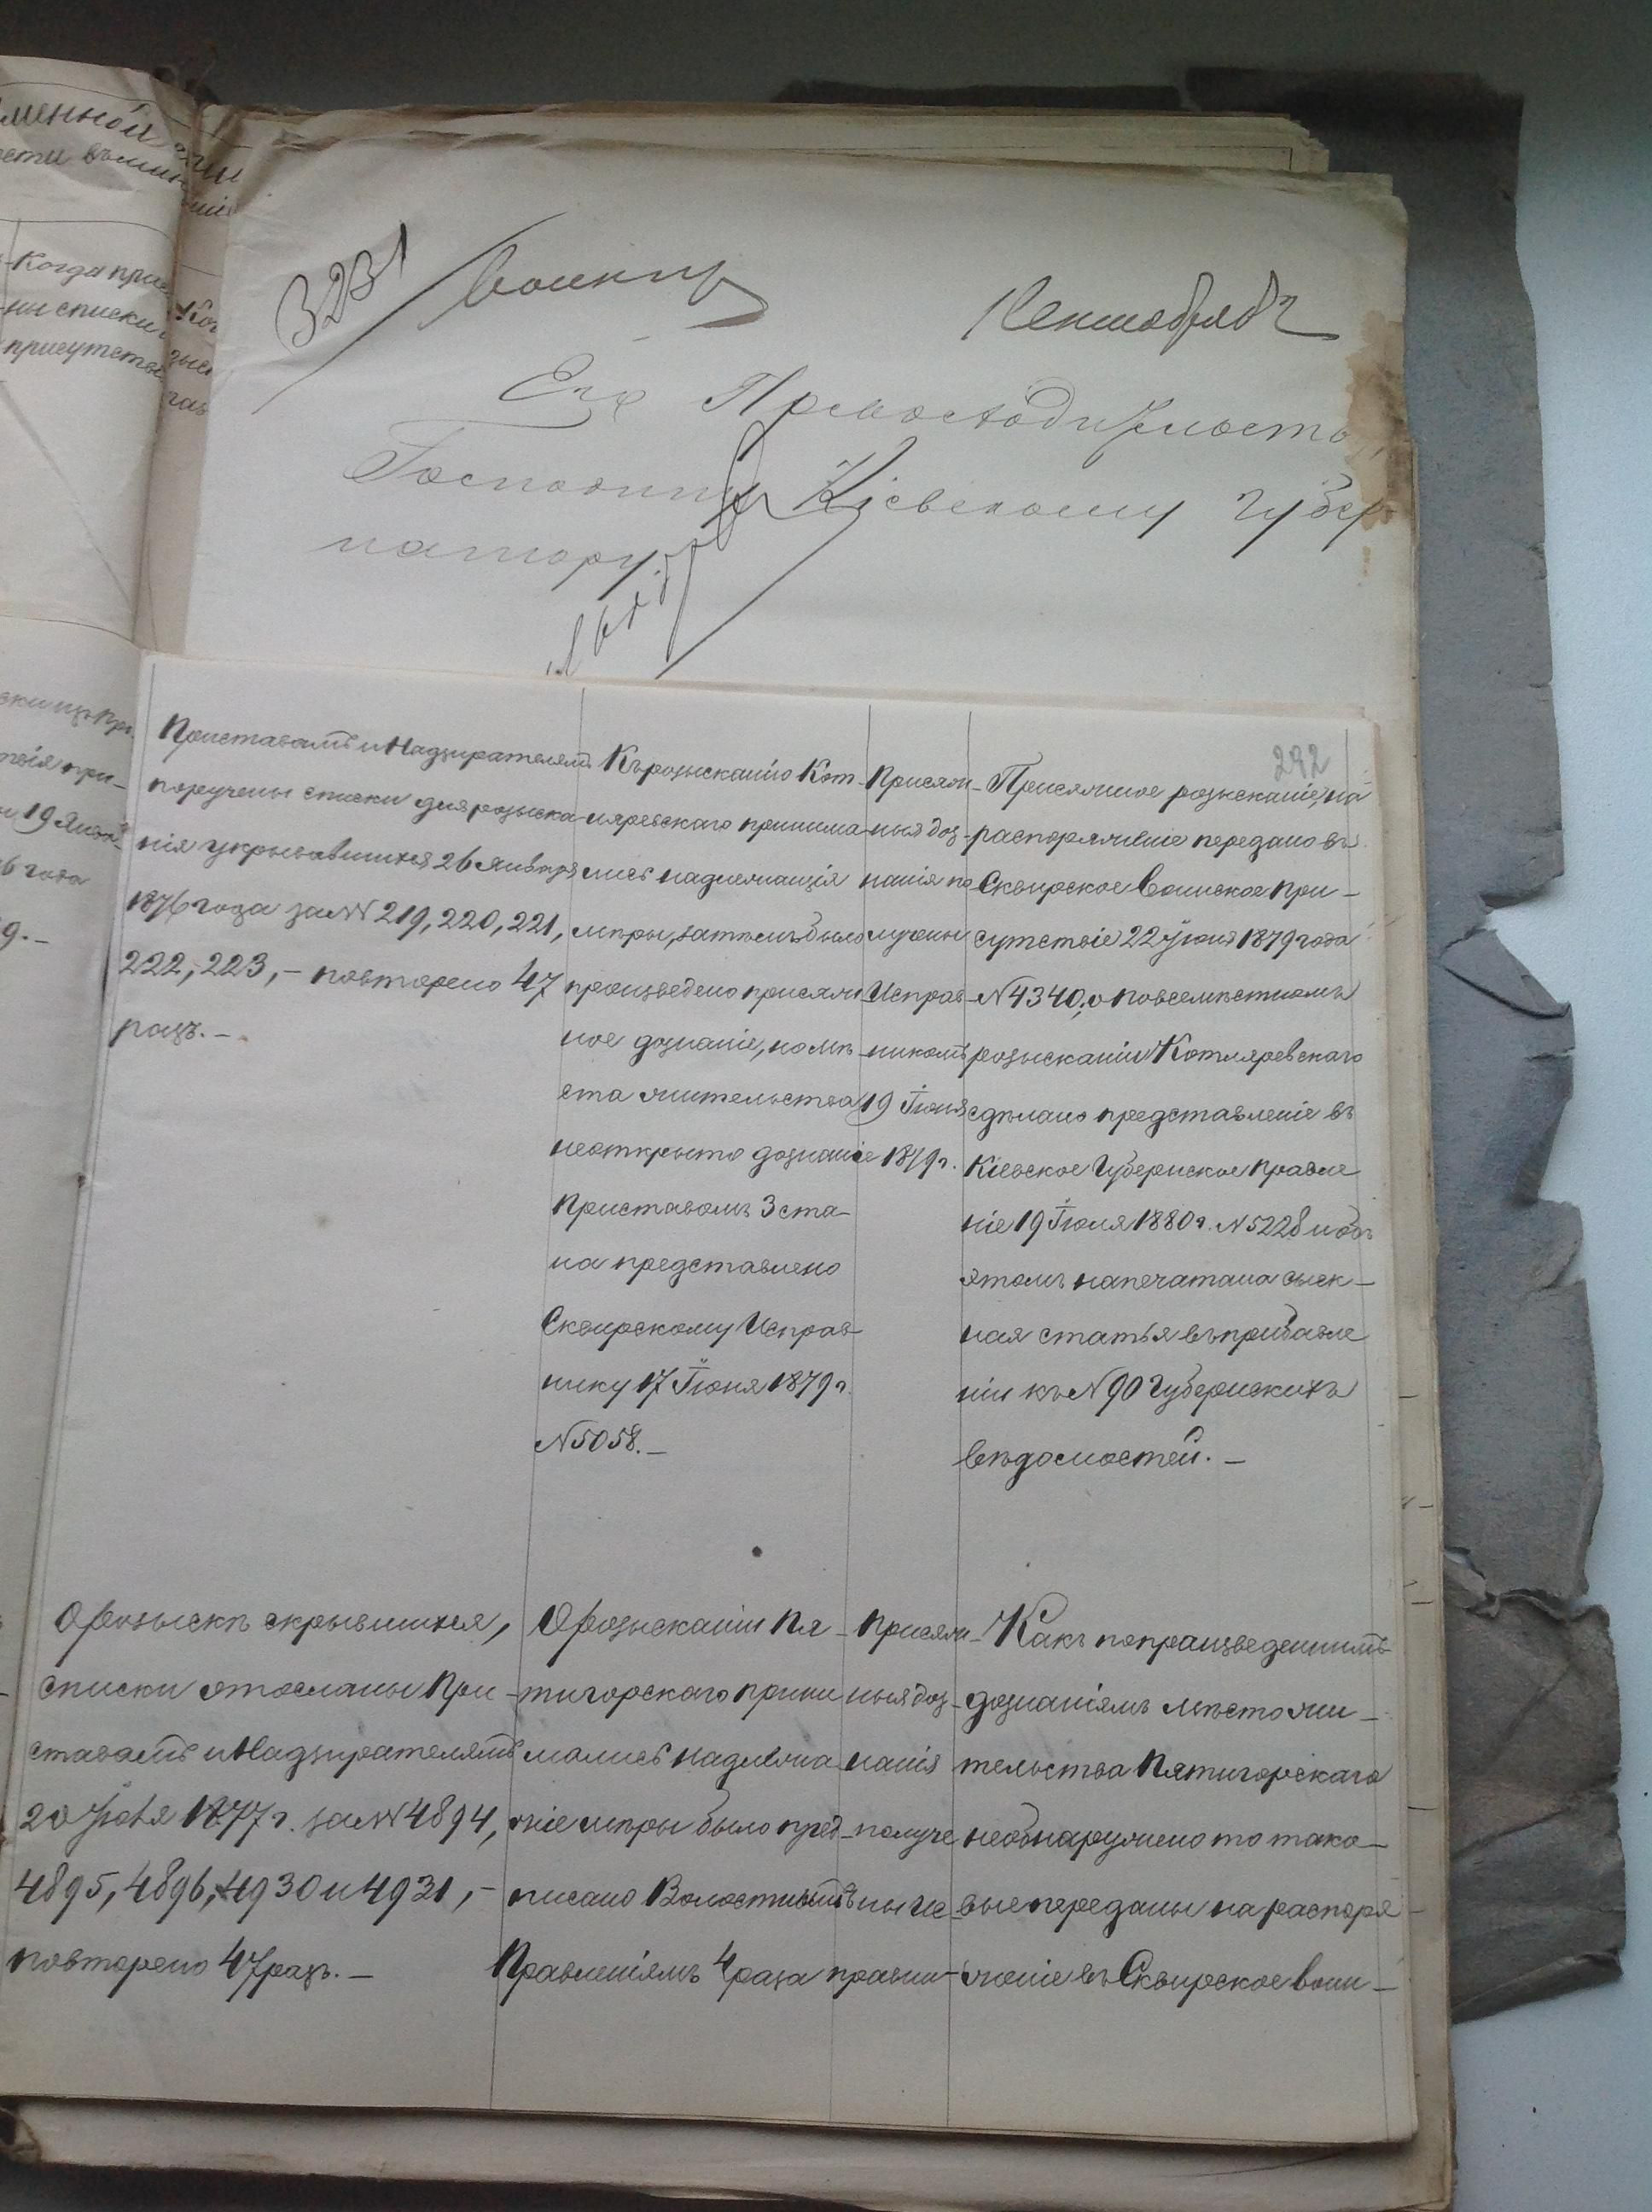 менной
ести
Когда при
ны списки
присутств
19 Янва
6 года
3231
Его Превосходительству
Господину Кіевскому Губер
натору
292
Приставамъ и Надзирателямъ
поручены списки для розыска
нія укрывавшихся 26 Января
1876 года за NN 219, 220, 221,
222, 223, – повторено 47
разъ. –
Къ розысканію Кот-
ляревскаго принима
лись надлежащія
мѣры, затѣмъ было
произведено присяж
ное дознаніе, но мѣ-
ста жительства
неоткрыто дознаніе
Приставомъ 3 ста-
на представлено
Сквирскому Исправ-
нику 17 Іюня 1879 г.
N 5058. –
Присяж-
ныя доз-
нанія по
лучены
Исправ-
никомъ
19 Іюня
1879 г.
Присяжное розысканіе, на
распоряженіе передано въ
Сквирское Воинское При-
сутствіе 22 Іюня 1879 года
N 4340; о повсемѣстномъ
розысканіи Котляревскаго
сдѣлано представленіе въ
Кіевское Губернское Правле
ніе 19 Іюля 1880 г. N 5228 и объ
этомъ напечатана сыск-
ная статья въ прибавле
ніи къ N 90 Губернскихъ
вѣдомостей. –
О розыскѣ скрывшихся,
списки отосланы При-
ставамъ и Надзирателямъ
1877 г. за NN 4894,
4895, 4896, 4930 и 4931, –
повторено 47 разъ. –
О розысканіи Пя-
тигорскаго прини
мались надлежа
щіе мѣры было пред-
писано Волостнымъ
Правленіямъ 4 раза
Присяж-
ныя доз-
нанія
получе
ны не
правил-
Какъ по произведеннымъ
дознаніямъ мѣсто жи-
тельства Пятигорскаго
необнаружено то тако-
вые переданы на распоря
женіе въ Сквирское Воин-